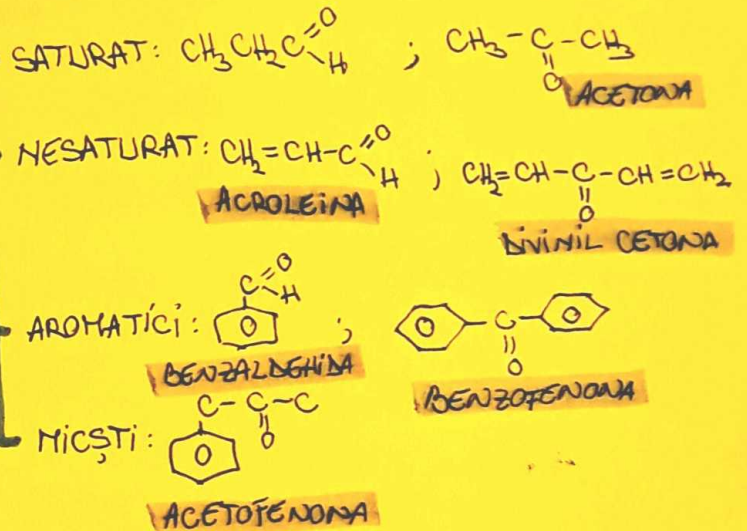 SATURAT: CH3CH2C=O H ; CH3-C-CH3
O
ACETONA
NESATURAT: CH2=CH-C=O H ; CH2=CH-C-CH=CH2
O
ACROLEINA
DIVINIL CETONA
C=O H
AROMATICI: O ; O -C- O
O
BENZALDEHIDA
BENZOFENONA
C-C-C
O
MICȘTI: O
ACETOFENONA